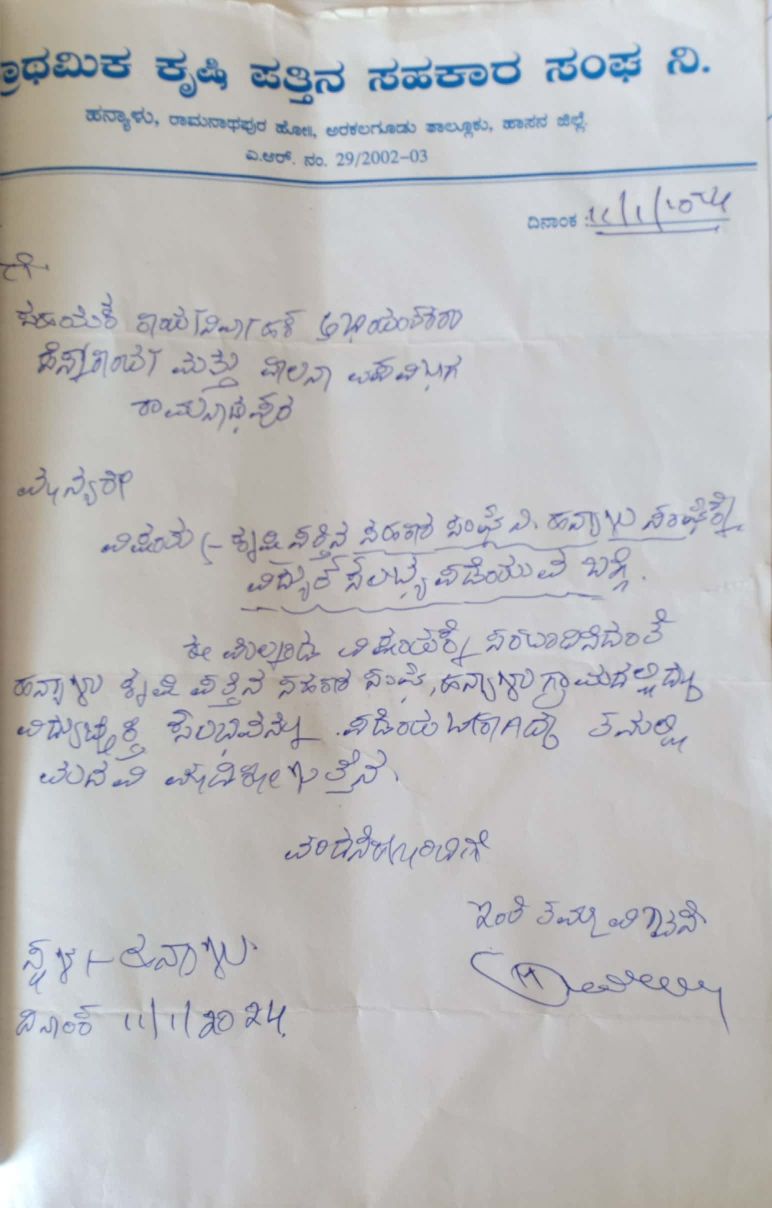 ಪ್ರಾಥಮಿಕ ಕೃಷಿ ಪತ್ತಿನ ಸಹಕಾರ ಸಂಘ ನಿ.
ಹನ್ಯಾಳು, ರಾಮನಾಥಪುರ ಹೋ||, ಅರಕಲಗೂಡು ತಾಲ್ಲೂಕು, ಹಾಸನ ಜಿಲ್ಲೆ.
ಎ.ಆರ್. ನಂ. 29/2002-03
ದಿನಾಂಕ : 11/1/2024
ಗೆ
ಸಹಾಯಕ ಕಾರ್ಯನಿರ್ವಾಹಕ ಅಭಿಯಂತರರು
ಮತ್ತು ಪಾಲನಾ ಉಪವಿಭಾಗ
ರಾಮನಾಥಪುರ
ಮಾನ್ಯರೇ
ವಿಷಯ :- ಕೃಷಿ ಪತ್ತಿನ ಸಹಕಾರ ಸಂಘ ನಿ. ಹನ್ಯಾಳು ಸಂಘಕ್ಕೆ
ವಿದ್ಯುತ್ ಸೌಲಭ್ಯ ಪಡೆಯುವ ಬಗ್ಗೆ.
ಈ ಮೇಲ್ಕಂಡ ವಿಷಯಕ್ಕೆ ಸಂಬಂದಿಸಿದಂತೆ
ಹನ್ಯಾಳು ಕೃಷಿ ಪತ್ತಿನ ಸಹಕಾರ ಸಂಘ, ಹನ್ಯಾಳು ಗ್ರಾಮದಲ್ಲಿದ್ದು
ವಿದ್ಯುಚ್ಛಕ್ತಿ ಸೌಲಭ್ಯವನ್ನು ಪಡೆಯಬೇಕಾಗಿದ್ದು ತಮ್ಮಲ್ಲಿ
ಮನವಿ ಮಾಡಿಕೊಳ್ಳುತ್ತೇನೆ.
ವಂದನೆಗಳೊಂದಿಗೆ
ಇಂತಿ ತಮ್ಮ ವಿಶ್ವಾಸಿ
ಸ್ಥಳ :- ಹನ್ಯಾಳು
ದಿನಾಂಕ 11/1/2024